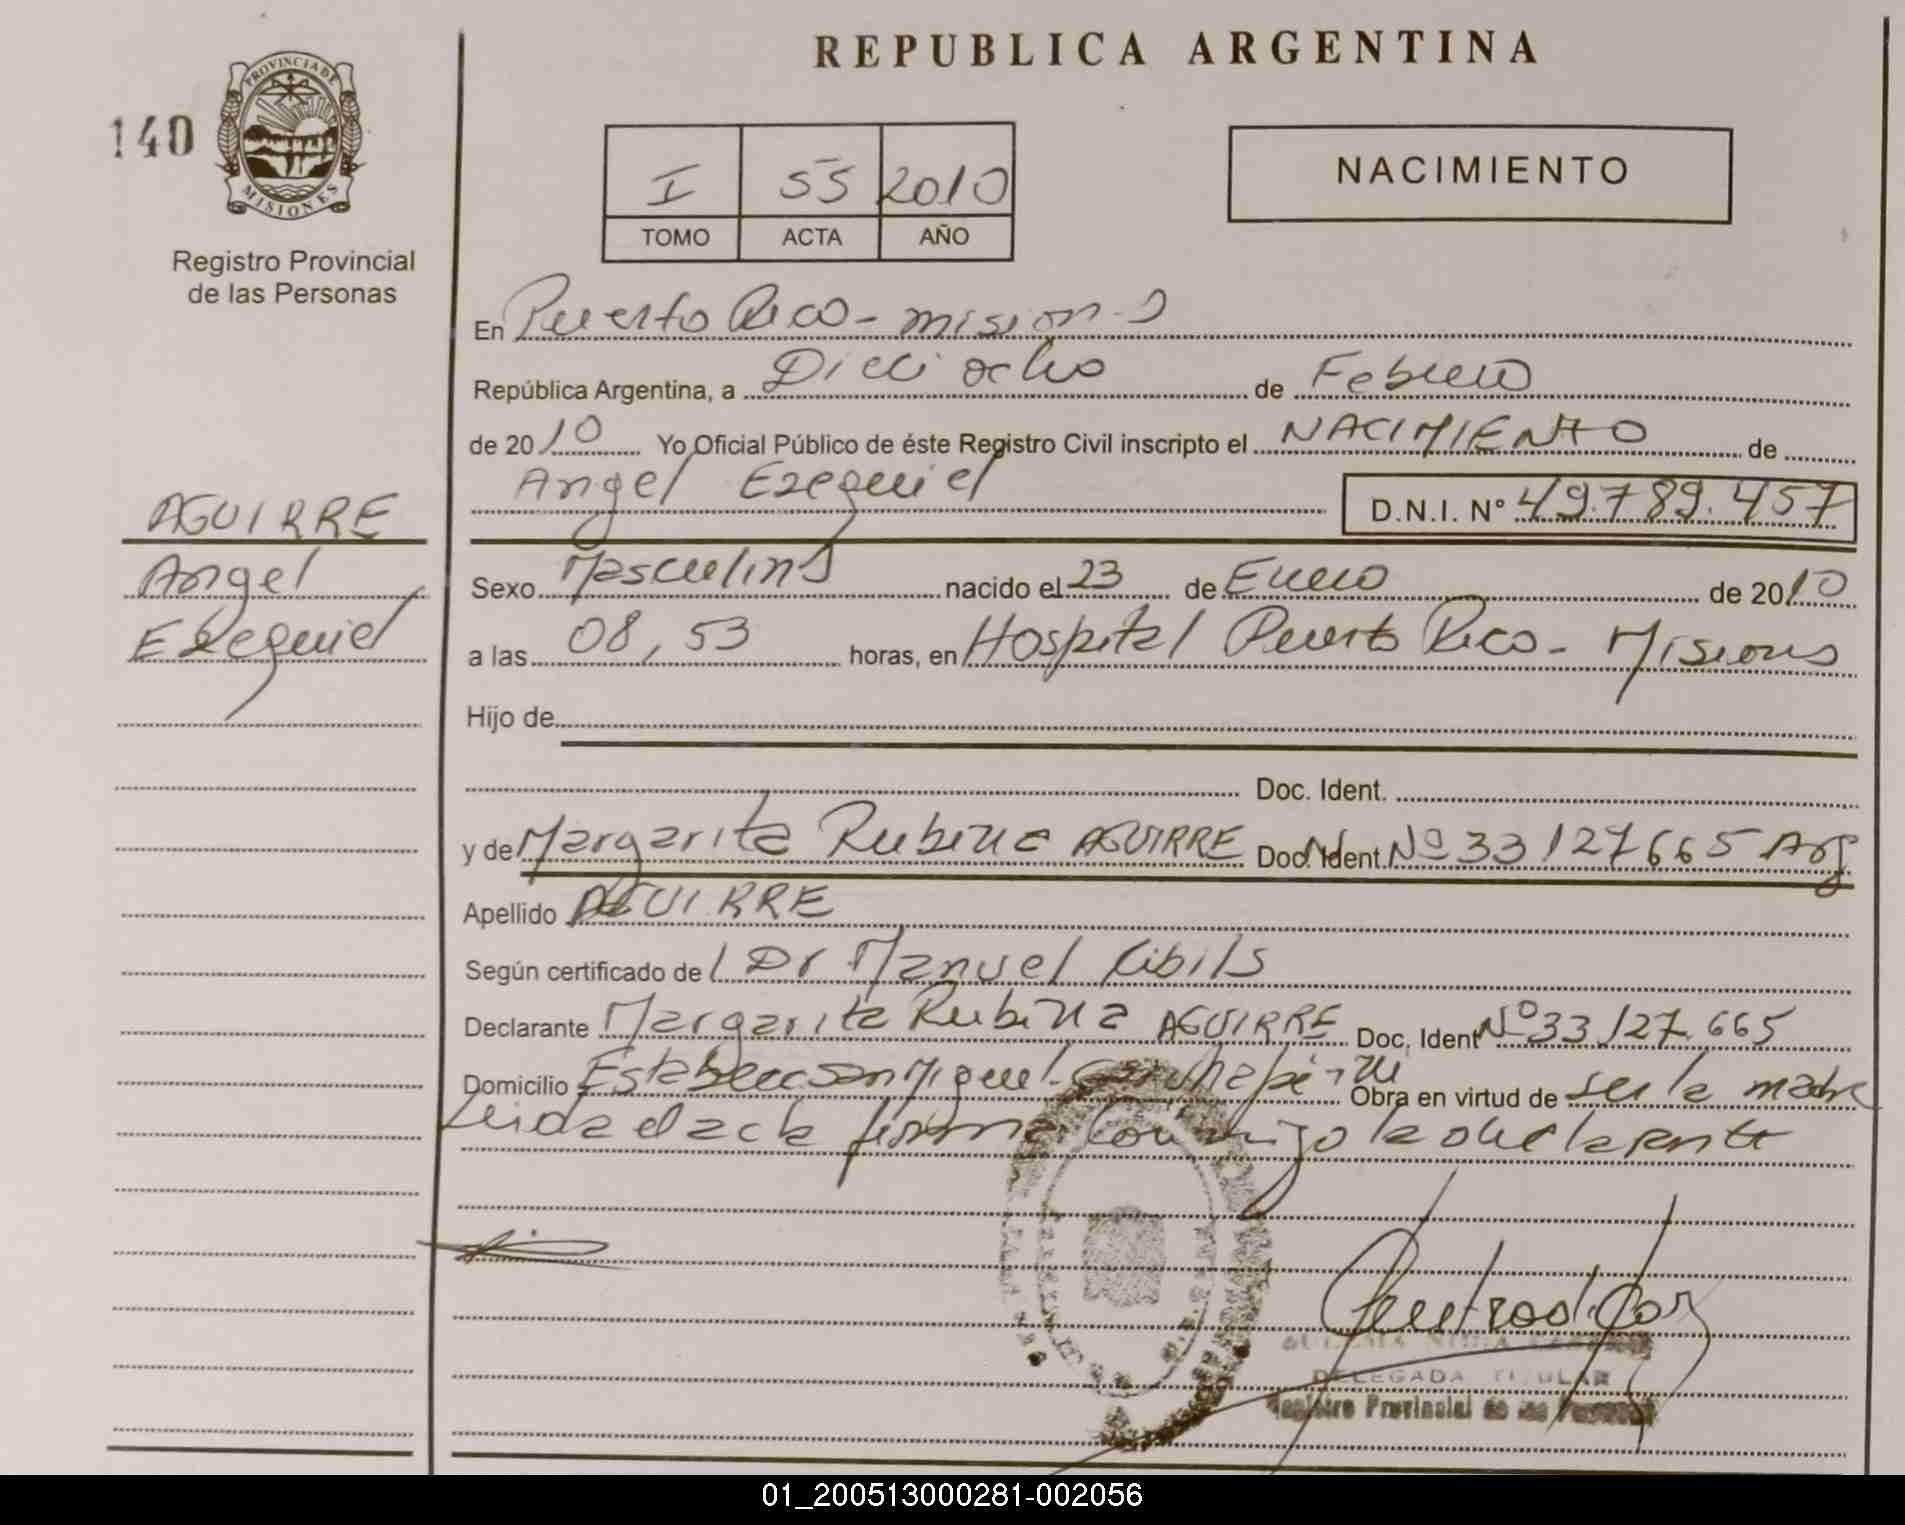 REPUBLICA ARGENTINA
140
PROVINCIA DE
MISIONES
Registro Provincial
de las Personas
I 55 2010
TOMO ACTA AÑO
NACIMIENTO
En Puerto Rico - Misiones
República Argentina, a Dieciocho de Febrero
de 2010 Yo Oficial Público de éste Registro Civil inscripto el NACIMIENTO de
Angel Ezequiel D.N.I. N° 49.789.457
AGUIRRE
Angel
Ezequiel
Sexo Masculino nacido el 23 de Enero de 2010
a las 08,53 horas, en Hospital Puerto Rico - Misiones
Hijo de
Doc. Ident.
y de Margarita Rubina AGUIRRE Doc. Ident. Nº 33127665 Arg
Apellido AGUIRRE
Según certificado de l Dr Manuel Cibils
Declarante Margarita Rubina AGUIRRE Doc. Ident Nº 33127.665
Domicilio San Miguel Obra en virtud de ser la madre
Leida el acta firma conmigo la declarante
DELEGADA TITULAR
Registro Provincial de las Personas
01_200513000281-002056